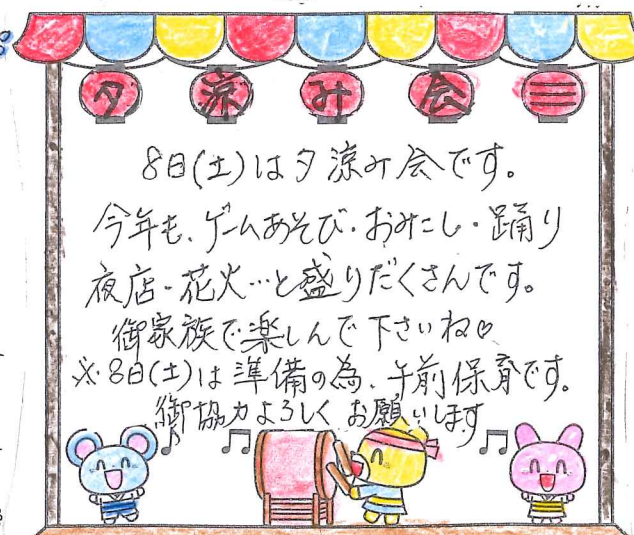 夕涼み会
8日(土)は夕涼み会です。
今年も、ゲームあそび・おみこし・踊り
夜店・花火…と盛りだくさんです。
御家族で楽しんで下さいね♡
※8日(土)は準備の為、午前保育です。
御協力よろしくお願いします